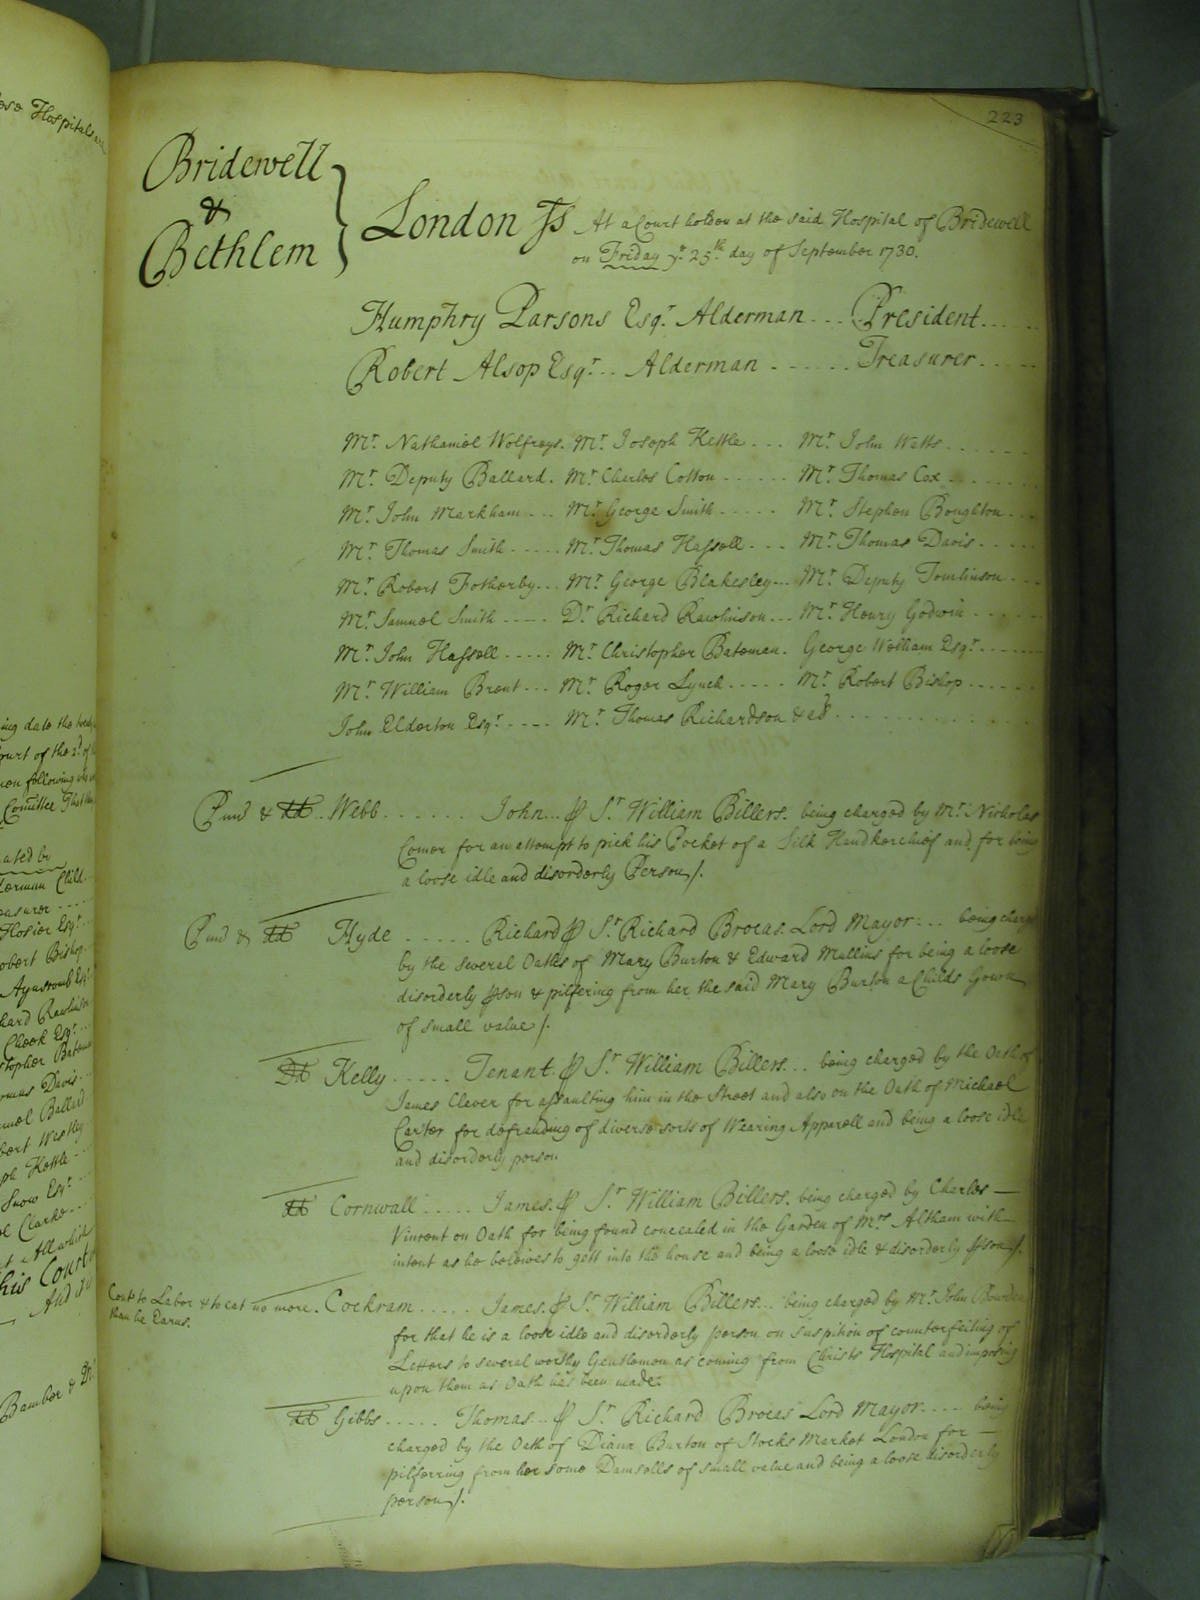 223
Bridewell
&
Bethlem
London Ss At a Court holden at the said Hospital of Bridewell
on Friday ye. 25th. day of September 1730.
Humphry Parsons Esqr. Alderman ... President
Robert Alsop Esqr. .. Alderman ...... Treasurer
Mr. Nathaniel Wolfreys. Mr. Joseph Kettle ... Mr. John Watts
Mr. Deputy Ballard. Mr Charles Cotton ...... Mr. Thomas Cox
Mr. John Markham ... Mr. George Smith ..... Mr. Stephen Boughton
Mr. Thomas Smith ..... Mr. Thomas Hassell ... Mr. Thomas Davis
Mr Robert Fotherby ... Mr. George Blakesley ... Mr. Deputy Tomlinson
Mr. Samuel Smith .... Dr Richard Rawlinson ... Mr. Henry Godwin
Mr. John Hassell ..... Mr. Christopher Bateman. George Wettiam Esqr.
Mr. William Brent ... Mr. Roger Lynch ..... Mr. Robert Bishop
John Elderton Esqr. .... Mr. Thomas Richardson &
Pund & dd .. Webb ...... John ... ꝑ Sr. William Billers. being charged by Mr. Nicholas
Comer for an attempt to pick his Pocket of a Silk Handkerchief and for being
a loose idle and disorderly Person/.
Pund & dd Hyde ..... Richard ꝑ Sr. Richard Brocas Lord Mayor ... being charged
by the several Oaths of Mary Burton & Edward Mullins for being a loose
disorderly ꝑson & pilfering from her the said Mary Burton a Childs Gown
of small value/.
Dd Kelly ..... Tenant. ꝑ Sr. William Billers ... being charged by the Oath of
James Clever for assaulting him in the Street and also on the Oath of Michael
Carter for defrauding of diverse sorts of Wearing Apparell and being a loose idle
and disorderly person
dd Cornwall ..... James. ꝑ Sr. William Billers. being charged by Charles —
Vincent on Oath for being found concealed in the Garden of Mrs. Altham with
intent as he beleives to gett into the house and being a loose idle & disorderly ꝑson/.
Cont. to Labor & to eat no more. Cockram ..... James. ꝑ Sr. William Billers ... being charged by Mr. John
than he Earns.
for that he is a loose idle and disorderly person on suspition of counterfeiting of
Letters to several worthy Gentlemen as coming from Christs Hospital and imposing
upon them as Oath has been made.
dd Gibbs ..... Thomas .. ꝑ Sr. Richard Brocas Lord Mayor .... being
charged by the Oath of Diana Burton of Stocks Market London for —
pilferring from her some Damsells of small value and being a loose disorderly
person/.